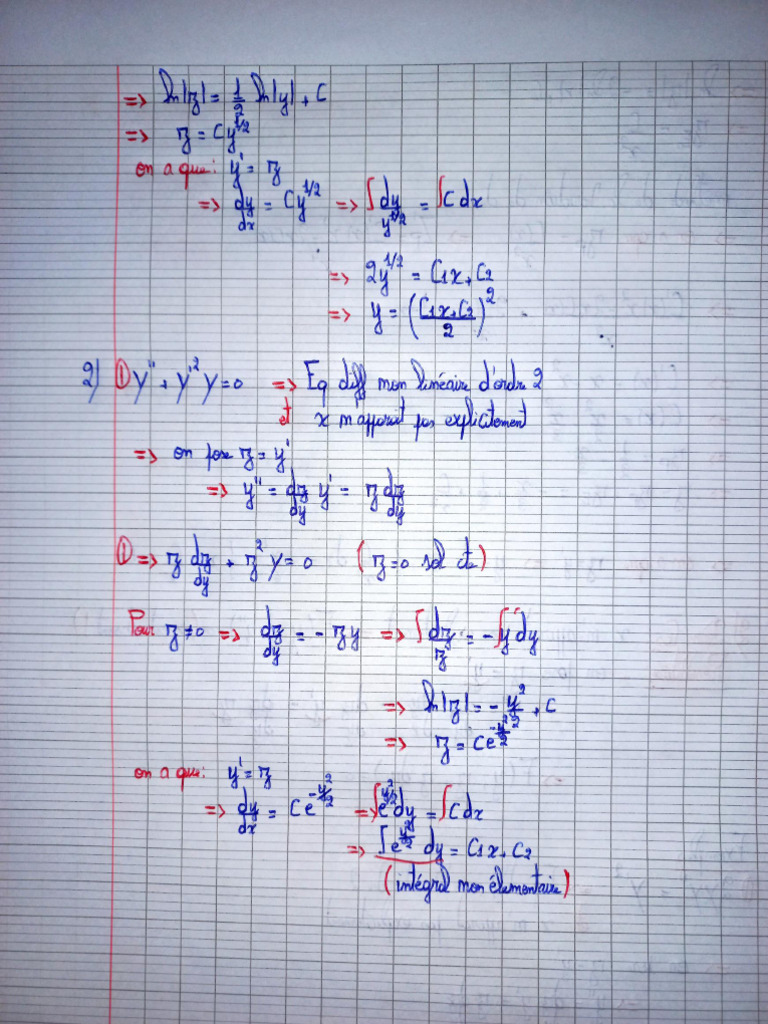 => ln|z| = 1/2 ln|y| + C
=> z = Cy^1/2
on a que: y' = z
=> dy/dx = Cy^1/2 => ∫ dy/y^1/2 = ∫C dx
=> 2y^1/2 = C1x + C2
=> y = ((C1x + C2)/2)^2
2) ① y'' + y'^2 y = 0 => Eq diff non linéaire d'ordre 2
et x n'apparait pas explicitement
=> on pose z = y'
=> y'' = dz/dy y' = z dz/dy
① => z dz/dy + z^2 y = 0 (z=0 sol cte)
Pour z ≠ 0 => dz/dy = - zy => ∫ dz/z = - ∫y dy
=> ln|z| = - y^2/2 + C
=> z = Ce^-y^2/2
on a que: y' = z
=> dy/dx = Ce^-y^2/2 => ∫e^y^2/2 dy = ∫C dx
=> ∫e^y^2/2 dy = C1x + C2
(intégral non élementaire)